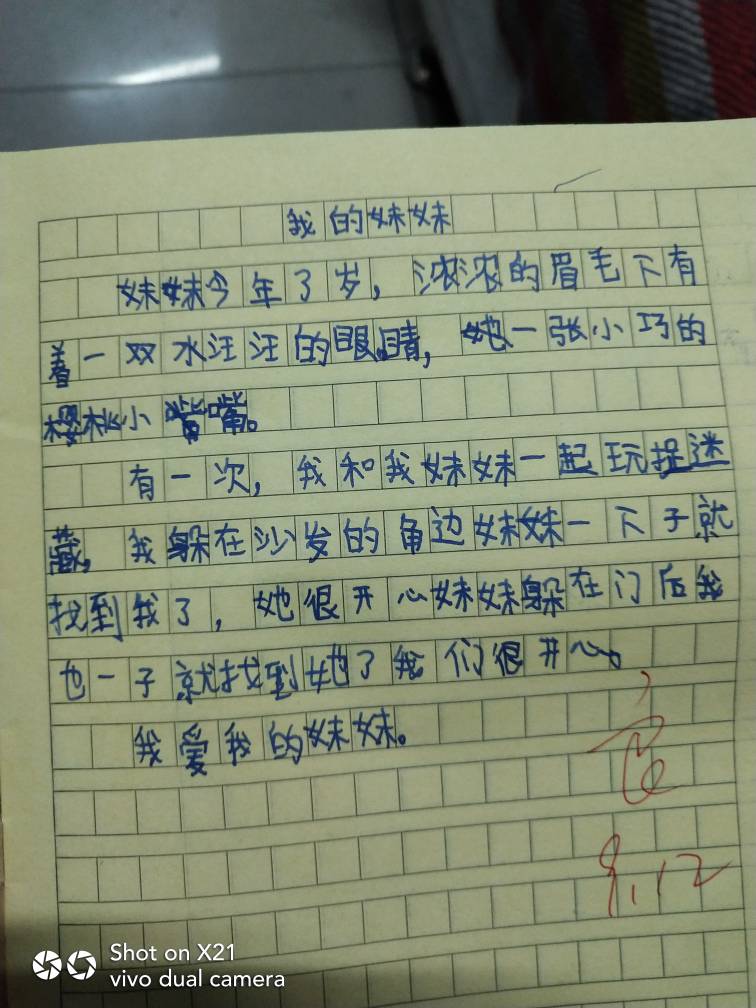 我的妹妹
妹妹今年3岁，浓浓的眉毛下有
着一双水汪汪的眼睛，她一张小巧的
樱桃小嘴嘴。
有一次，我和我妹妹一起玩捉迷
藏，我躲在沙发的角边妹妹一下子就
找到我了，她很开心妹妹躲在门后我
也一子就找到她了我们很开心。
我爱我的妹妹。
9.12
Shot on X21
vivo dual camera